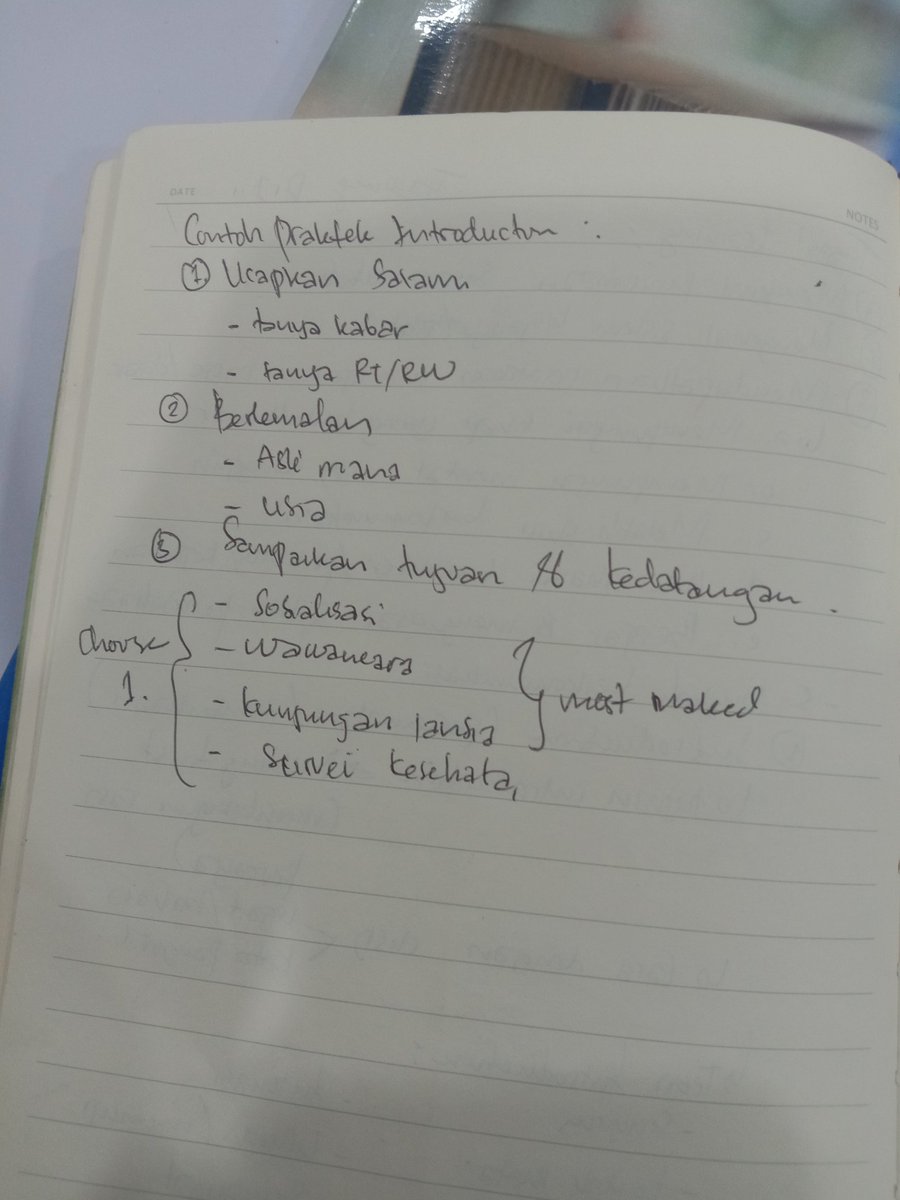 DATE
NOTES
Contoh praktek Introduction :
① Ucapkan Salam
- tanya kabar
- tanya Rt/RW
② Berkenalan
- Asli mana
- usia
③ Sampaikan tujuan kedatangan.
- Sosialisasi
choose - Wawancara
1. - kunjungan lansia } most
- Survei kesehatan